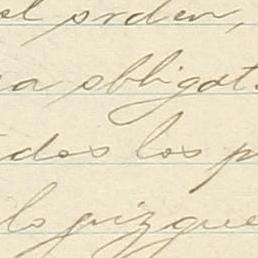 el orden,
a obligat
dos los p
lo juzgue